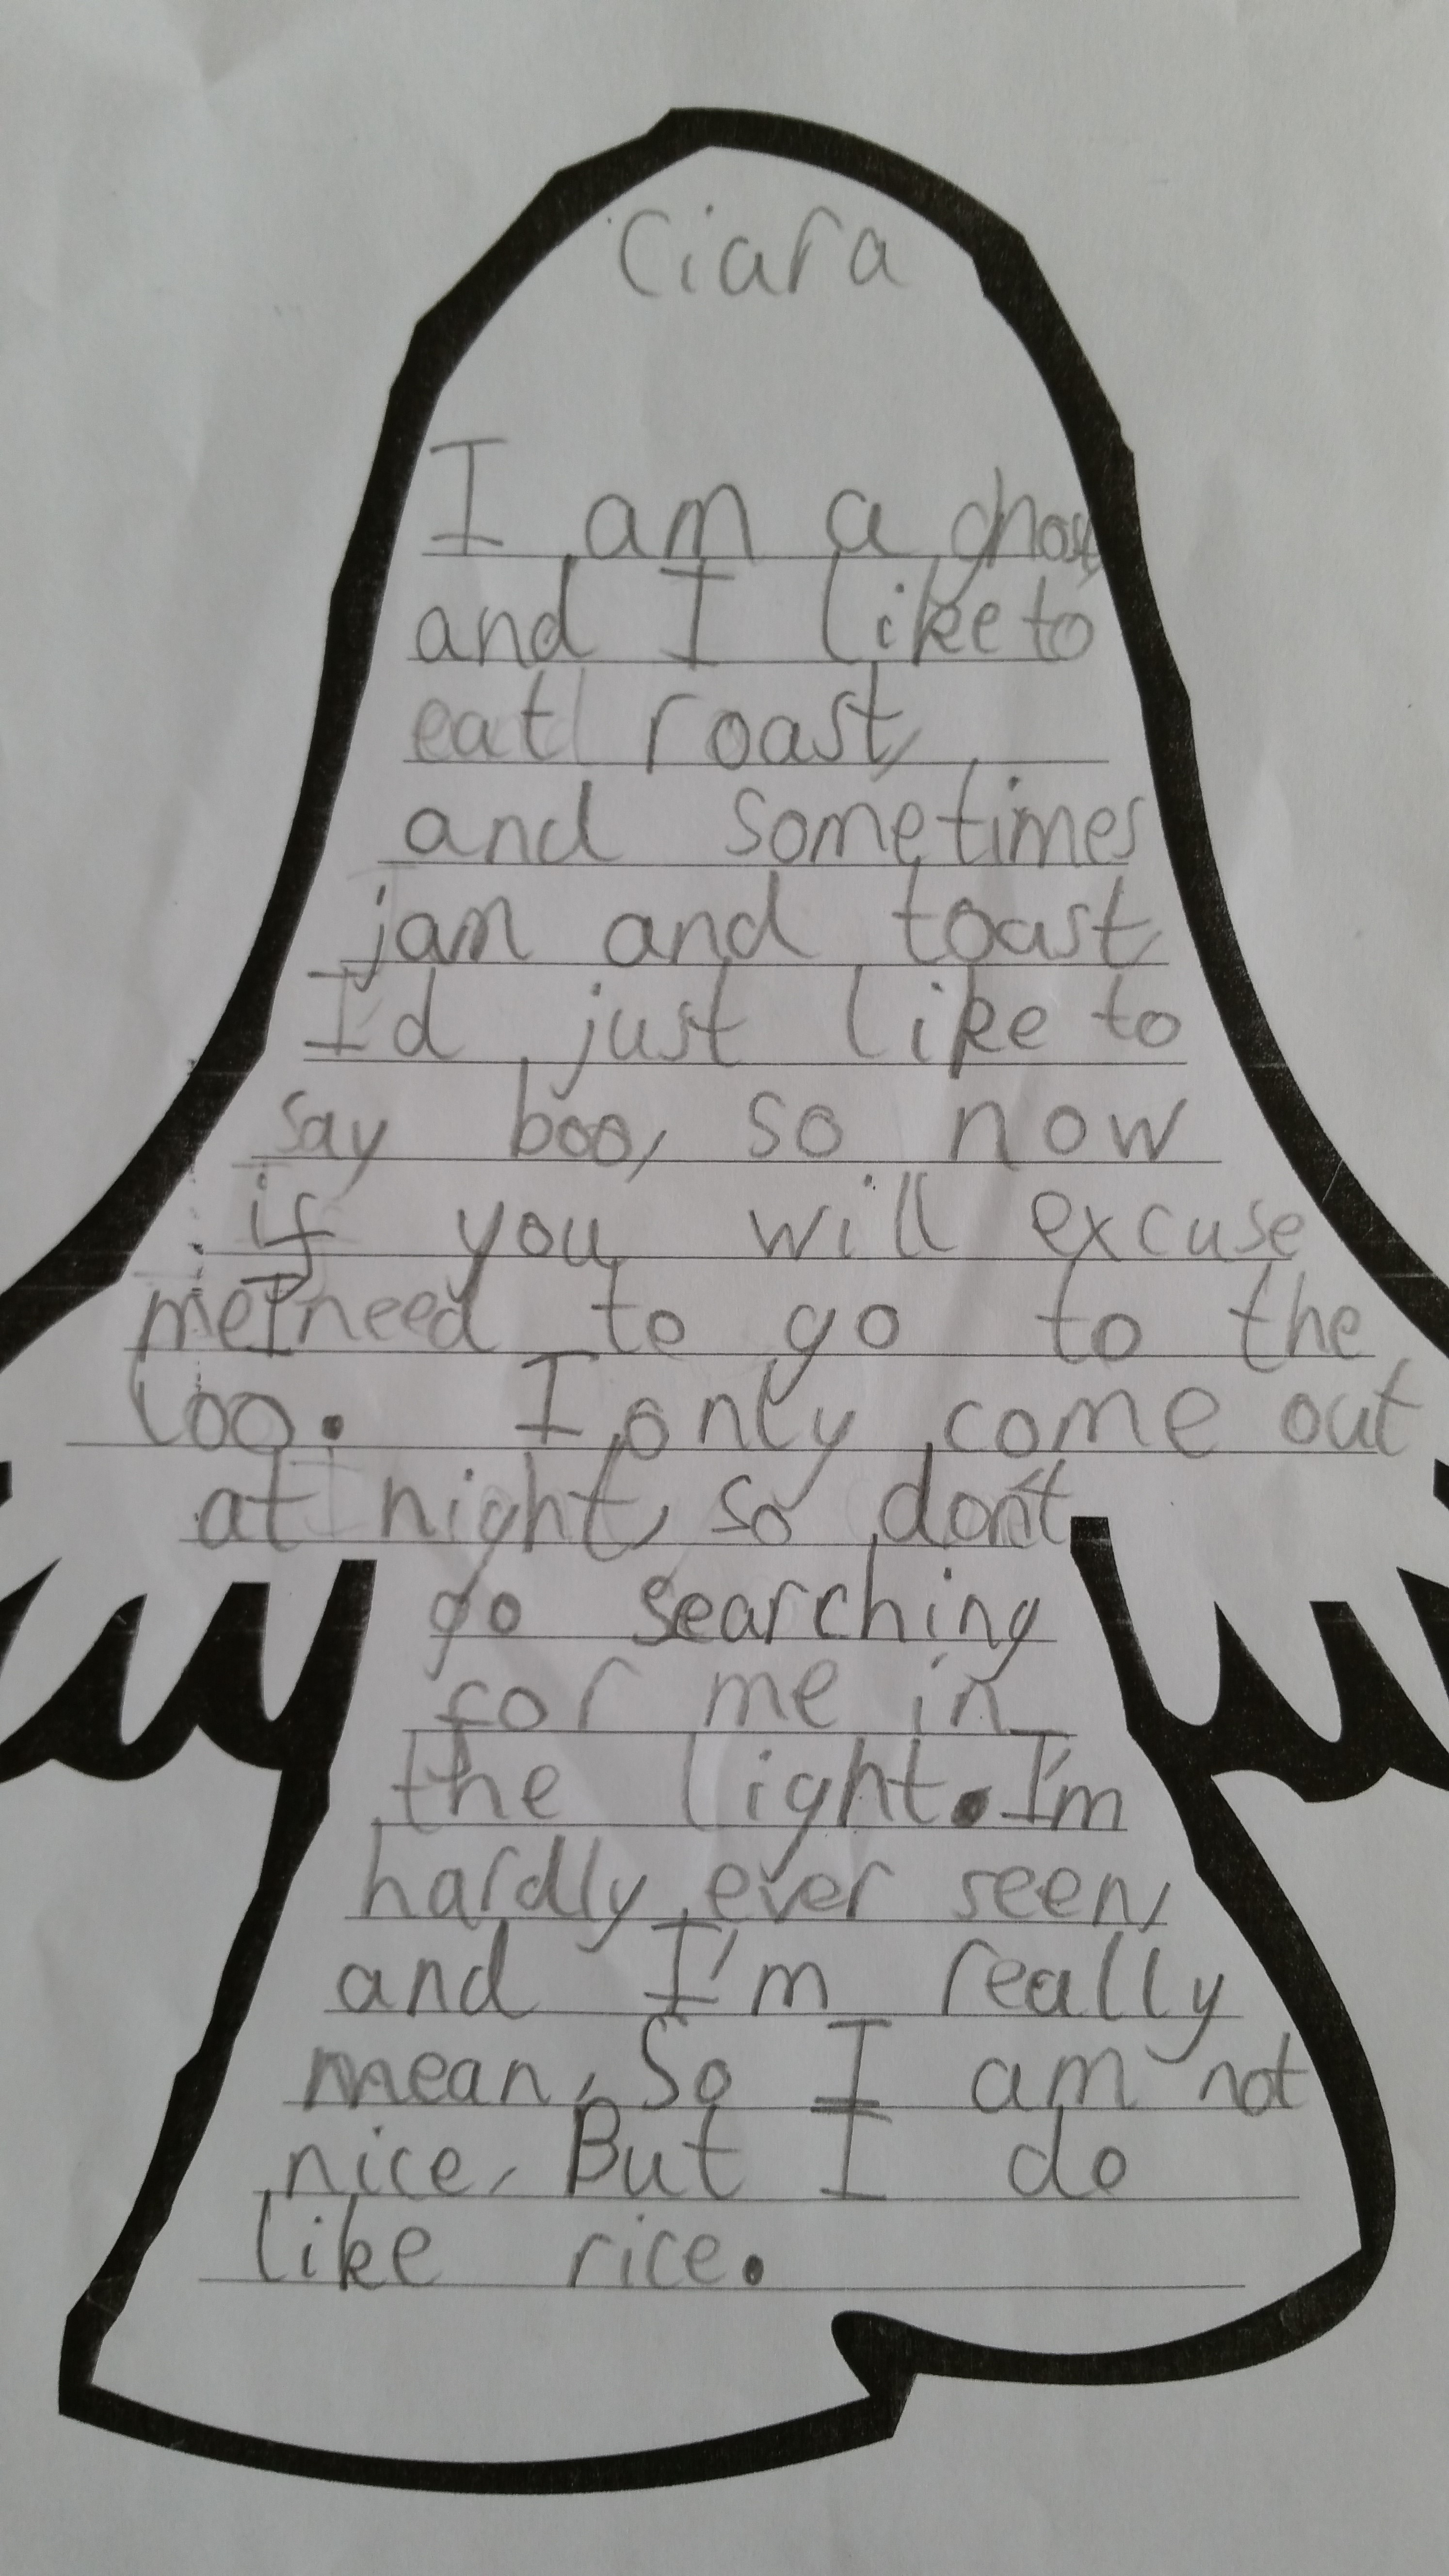 Ciara
I am a ghost,
and I like to
eat roast,
and sometimes
jam and toast,
I'd just like to
say boo, so now
if you will excuse
me I need to go to the
loo. I only come out
at night, so don't
go searching
for me in
the light. I'm
hardly ever seen,
and I'm really
mean, So I am not
nice, But I do
like rice.